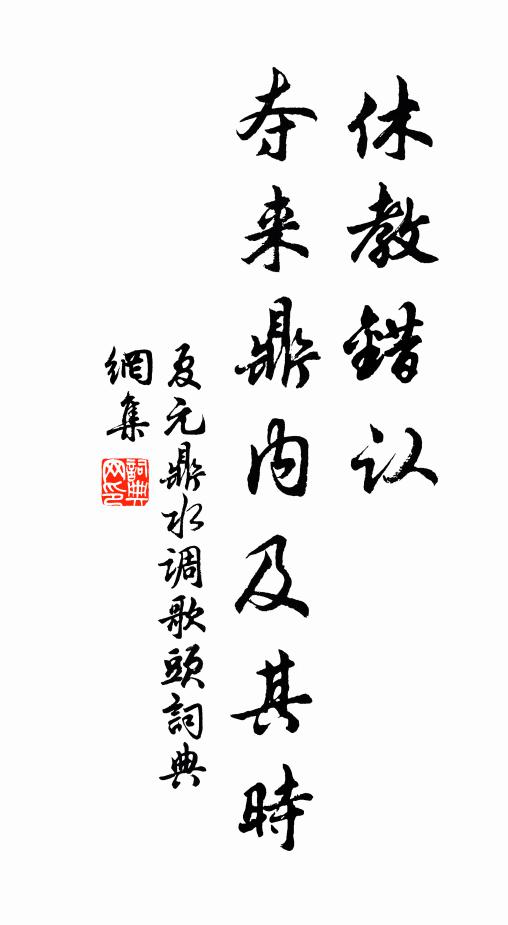 休教錯认
夺来鼎内及其時
夏元鼎水调歌頭詞典
網集
詞典
网印